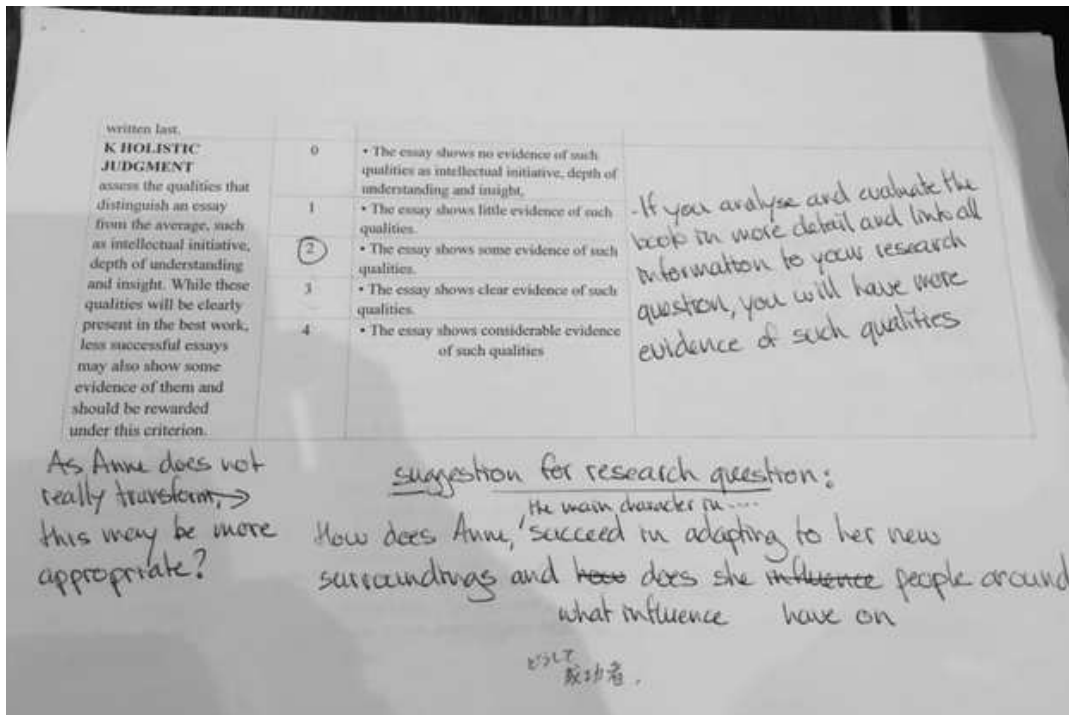 written last.
K HOLISTIC
JUDGMENT
assess the qualities that
distinguish an essay
from the average, such
as intellectual initiative,
depth of understanding
and insight. While these
qualities will be clearly
present in the best work,
less successful essays
may also show some
evidence of them and
should be rewarded
under this criterion.
0
• The essay shows no evidence of such
qualities as intellectual initiative, depth of
understanding and insight.
1
• The essay shows little evidence of such
qualities.
2
• The essay shows some evidence of such
qualities.
3
• The essay shows clear evidence of such
qualities.
4
• The essay shows considerable evidence
of such qualities
-If you analyse and evaluate the
book in more detail and link all
information to your research
question, you will have more
evidence of such qualities
As Anne does not
really transform, →
this may be more
appropriate?
suggestion for research question:
the main character in....
How does Anne, succeed in adapting to her new
surroundings and how does she influence people around
what influence have on
どうして
成功者.